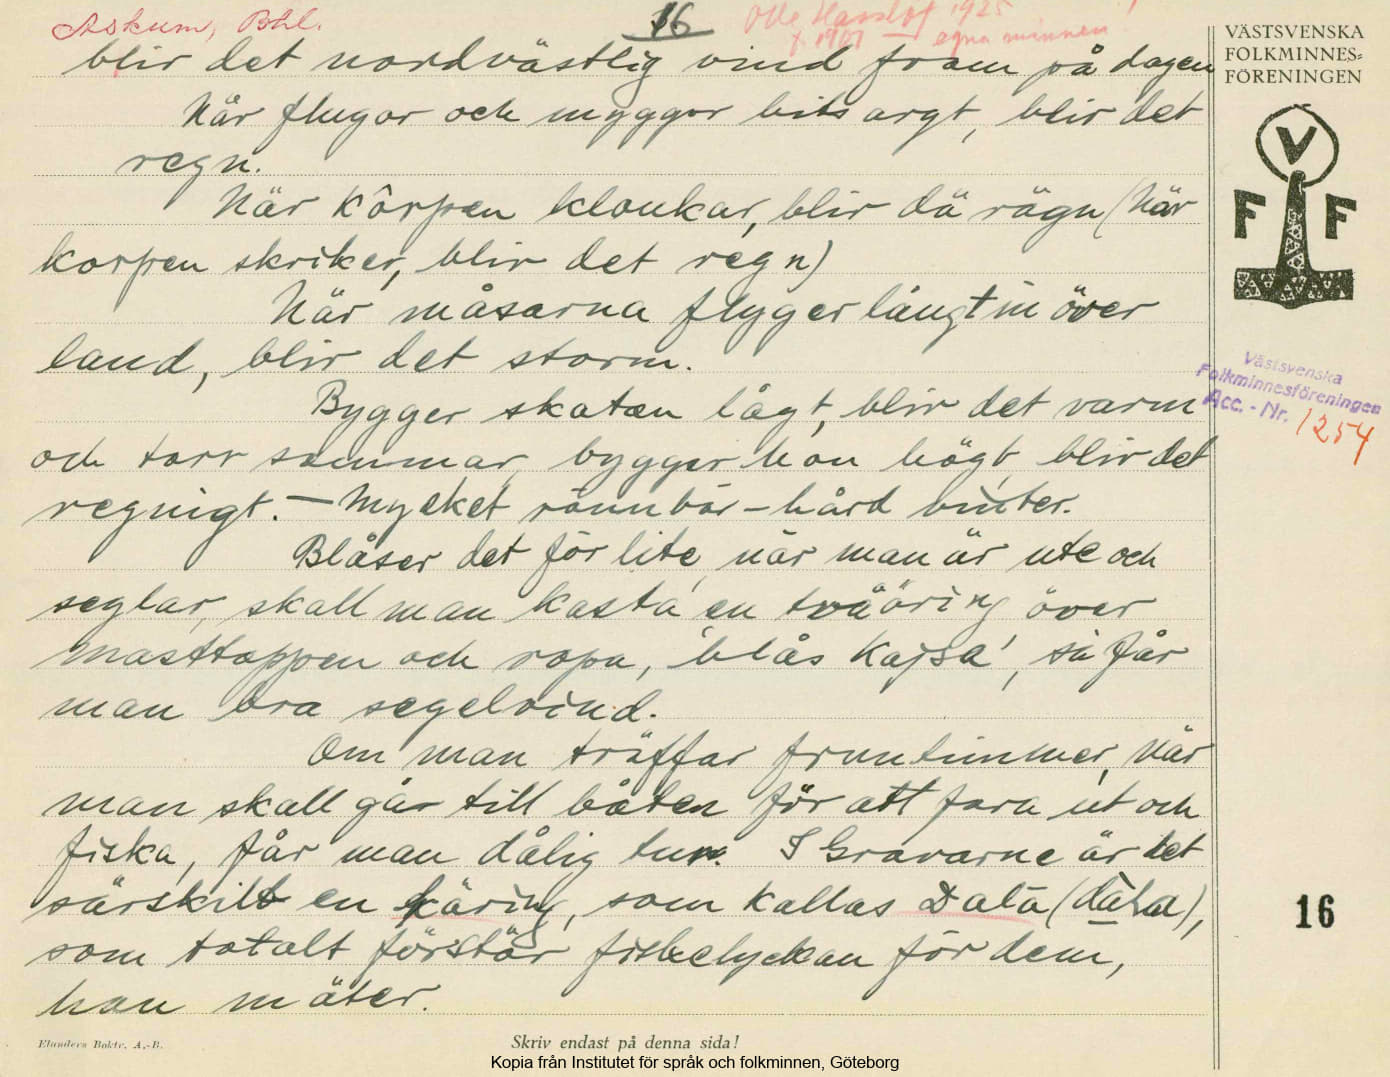 Askum, Bhl.
16
Olle Hasslöf 1925
f. 1901 — egna minnen!
VÄSTSVENSKA
FOLKMINNES=
FÖRENINGEN
blir det nordvästlig vind fram på dagen
När flugor och myggor bits argt, blir det
regn.
När kôrpen kloukar, blir dä rägn (När
korpen skriker, blir det regn)
När måsarna flyger långt in över
land, blir det storm.
Bygger skatan lågt, blir det varm
och torr sommar, bygger hon högt, blir det
regnigt. — Mycket rönnbär – hård vinter.
Blåser det för lite, när man är ute och
seglar, skall man kasta en tvååring över
masttoppen och ropa, 'blås Kajsa', så får
man bra segelvind.
Om man träffar fruntimmer, när
man skall gå till båten för att fara ut och
fiska, får man dålig tur. I Gravarne är det
särskilt en käring, som kallas Data (dàta),
som totalt förstör fiskelyckan för dem,
hon möter.
V
F F
Västsvenska
Folkminnesföreningen
Acc. - Nr. 1254
16
Elanders Boktr. A.-B.
Skriv endast på denna sida!
Kopia från Institutet för språk och folkminnen, Göteborg